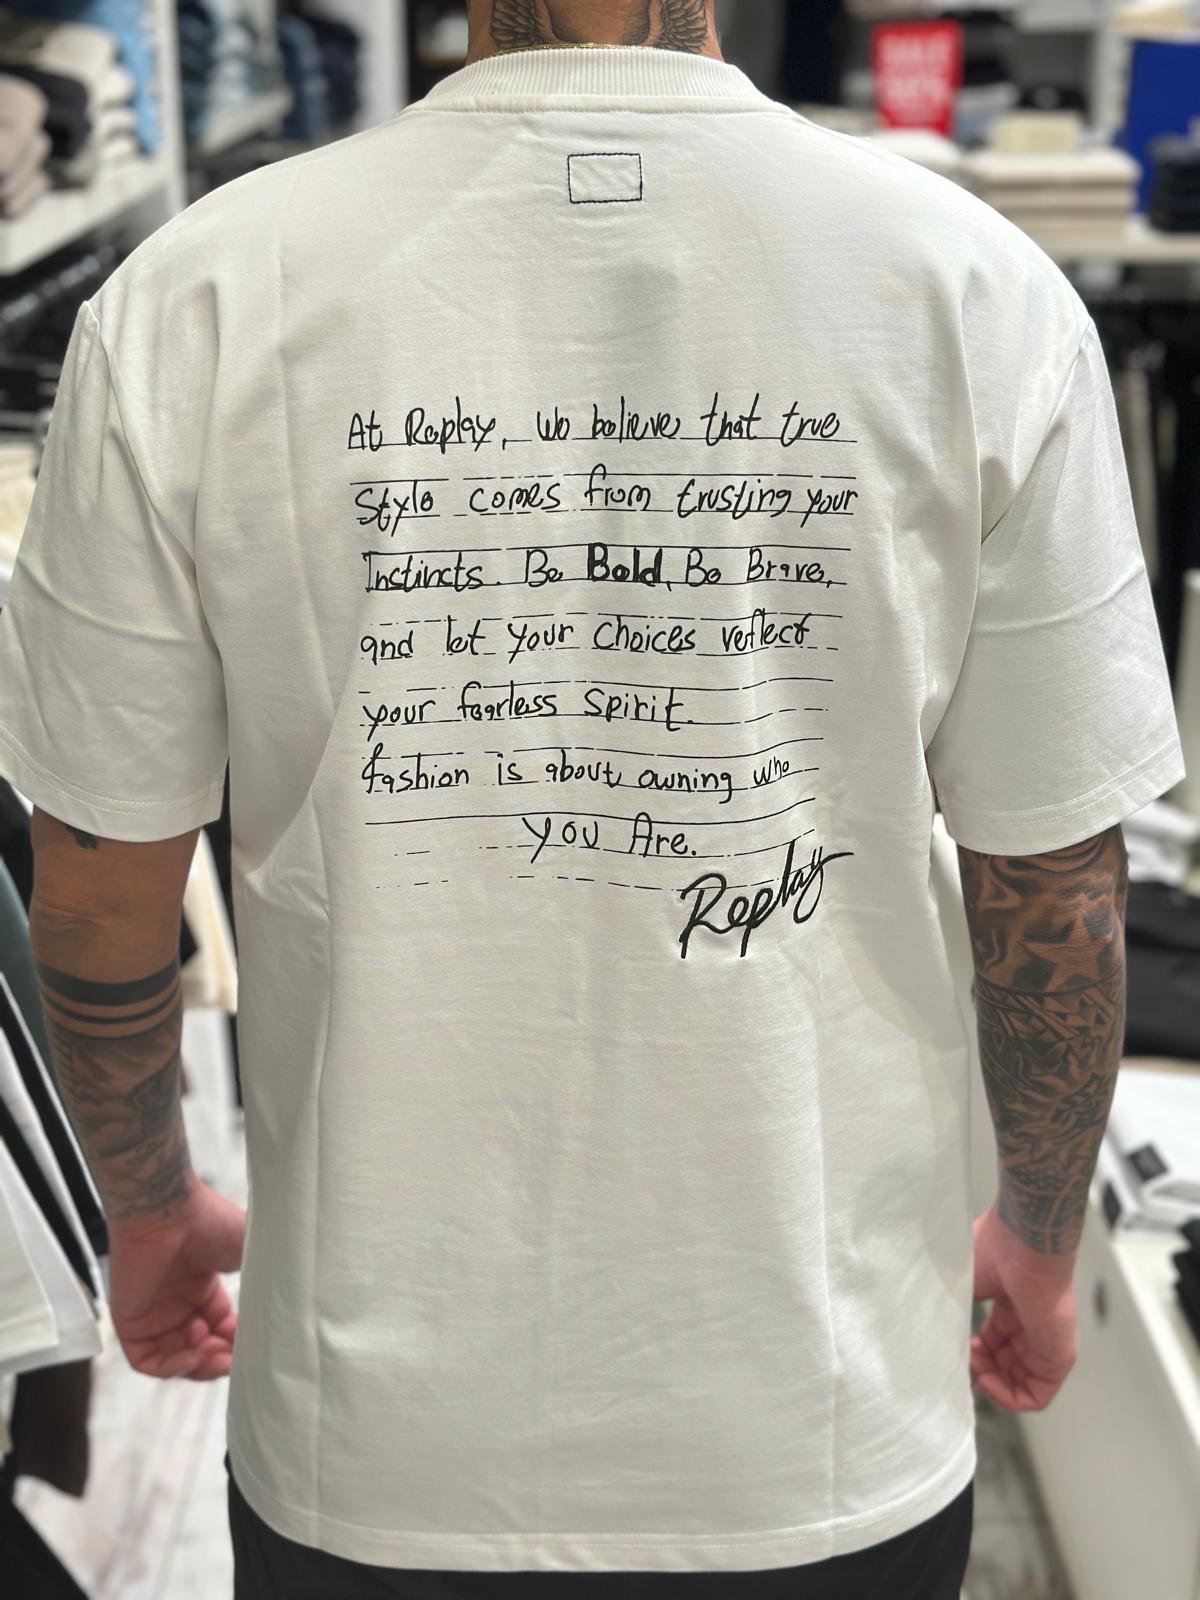 At Replay, We believe that true
Style comes from trusting your
Instincts. Be Bold, Be Brave,
and let your Choices reflect
your fearless Spirit.
fashion is about owning who
you Are.
Replay
SALE